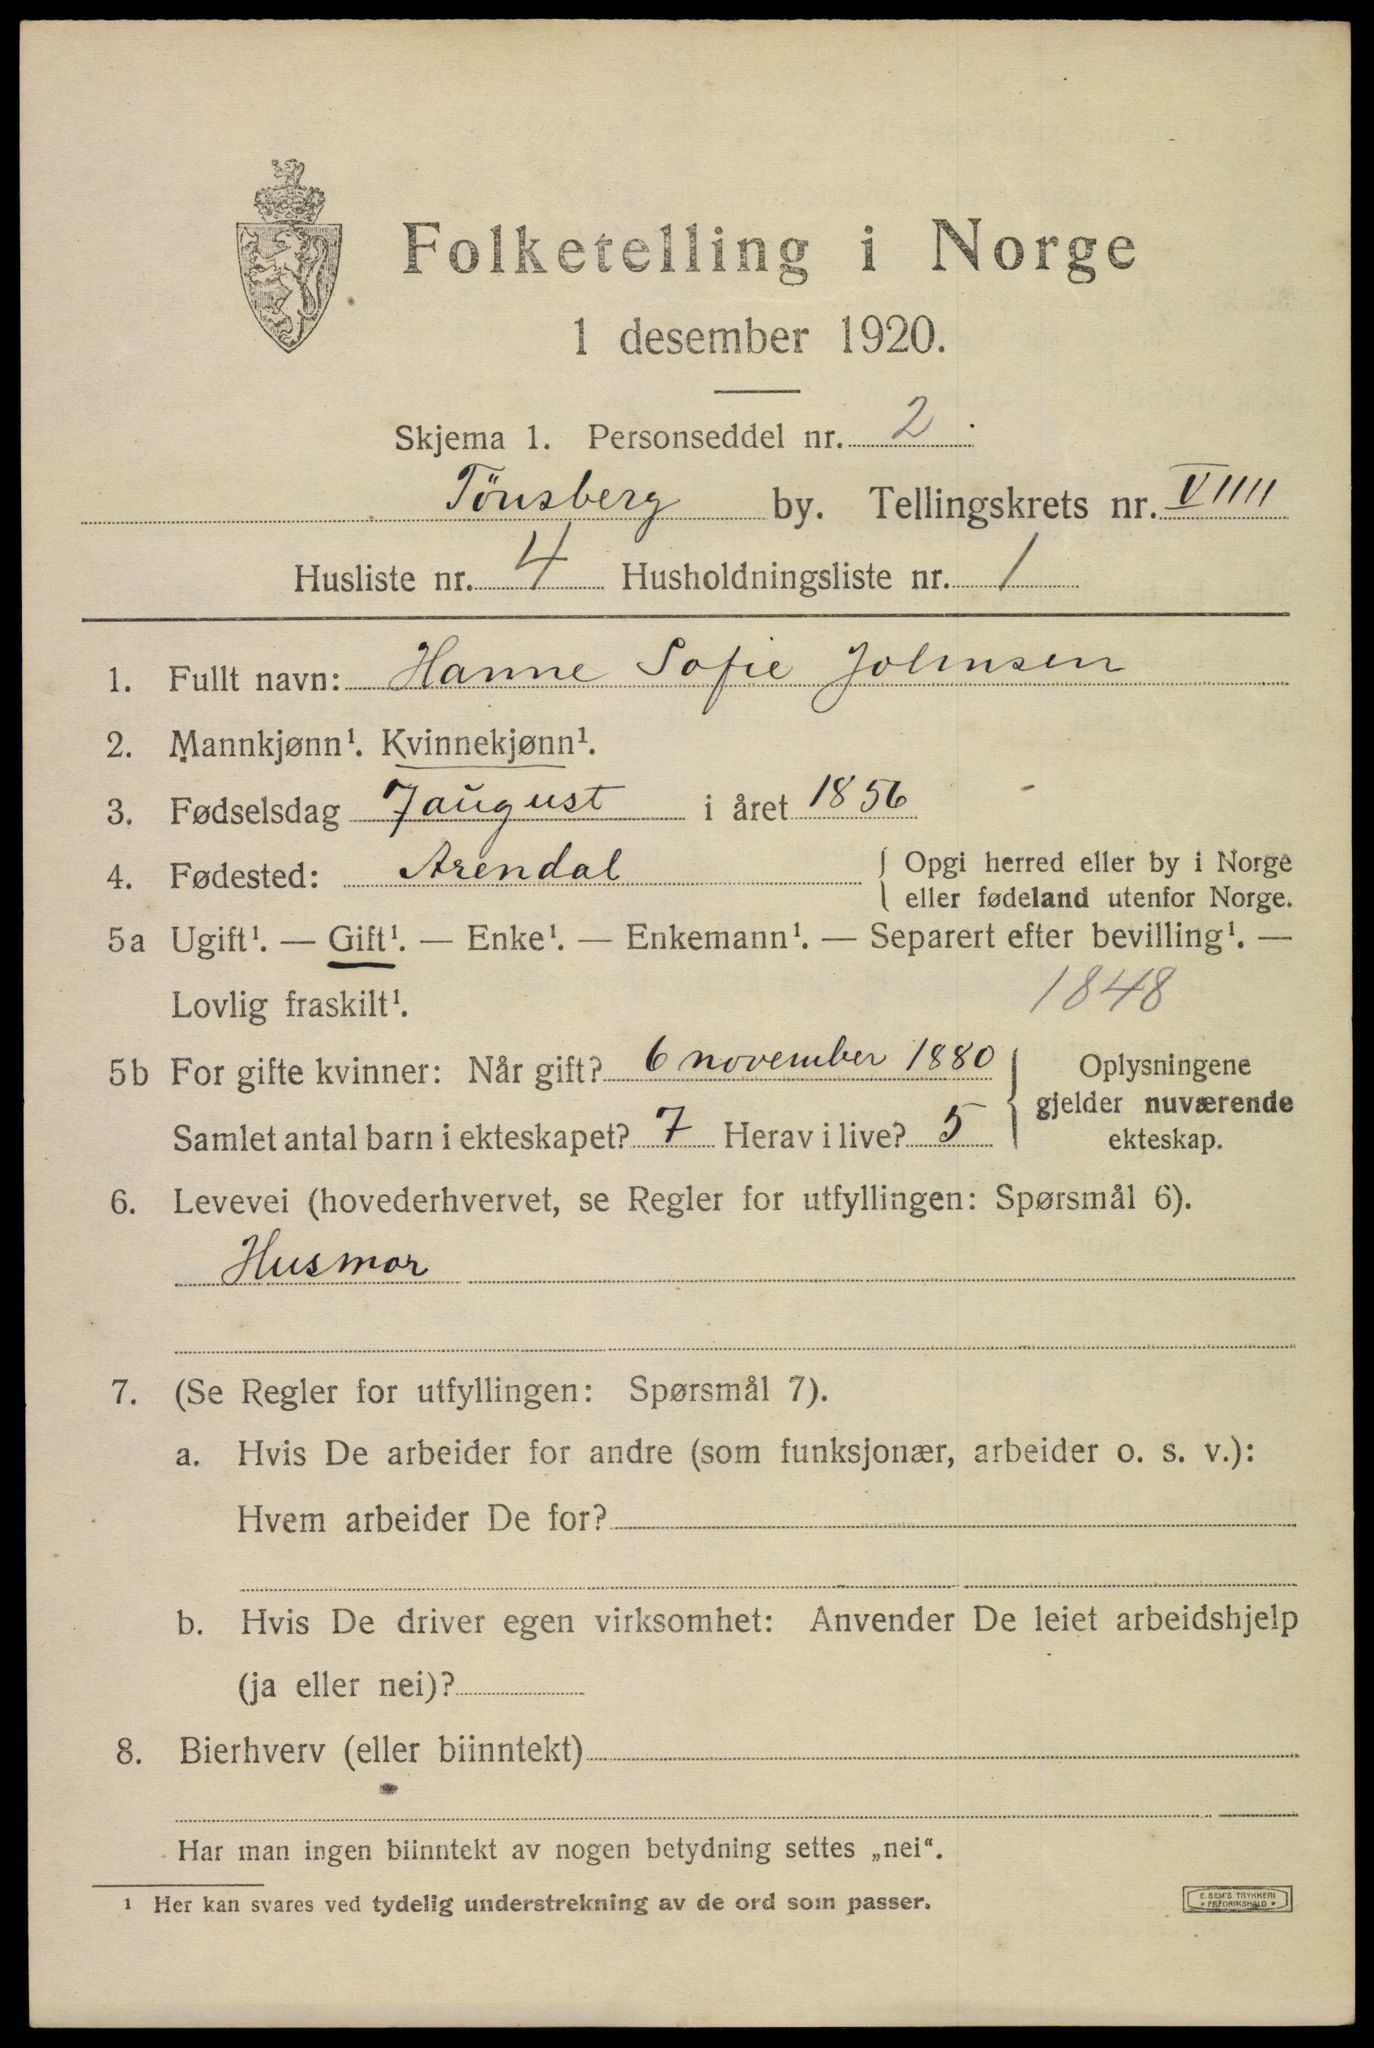 Folketelling i Norge
1 desember 1920.
Skjema 1. Personseddel nr. 2
Tönsberg by. Tellingskrets nr. VIIII
Husliste nr. 4 Husholdningsliste nr. 1
1. Fullt navn: Hanne Sofie Johnsen
2. Mannkjønn¹. Kvinnekjønn¹.
3. Fødselsdag 7 august i året 1856
4. Fødested: Arendal { Opgi herred eller by i Norge
eller fødeland utenfor Norge.
5a Ugift¹. — Gift¹. — Enke¹. — Enkemann¹. — Separert efter bevilling¹. —
Lovlig fraskilt¹. 1848
5b For gifte kvinner: Når gift? 6 november 1880 } Oplysningene
gjelder nuværende
Samlet antal barn i ekteskapet? 7 Herav i live? 5 ekteskap.
6. Levevei (hovederhvervet, se Regler for utfyllingen: Spørsmål 6).
Husmor
7. (Se Regler for utfyllingen: Spørsmål 7).
a. Hvis De arbeider for andre (som funksjonær, arbeider o. s. v.):
Hvem arbeider De for?
b. Hvis De driver egen virksomhet: Anvender De leiet arbeidshjelp
(ja eller nei)?
8. Bierhverv (eller biinntekt)
Har man ingen biinntekt av nogen betydning settes „nei“.
¹ Her kan svares ved tydelig understrekning av de ord som passer.
E. SEM'S TRYKKERI
• FREDRIKSHALD •